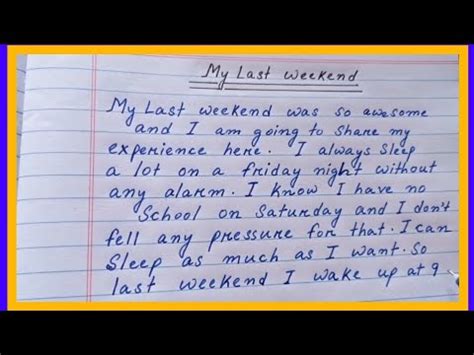 My Last weekend
My Last weekend was so awesome
and I am going to share my
experience here. I always sleep
a lot on a friday night without
any alarm. I know I have no
School on Saturday and I don't
fell any pressure for that. I can
Sleep as much as I want. So
last weekend I wake up at 9